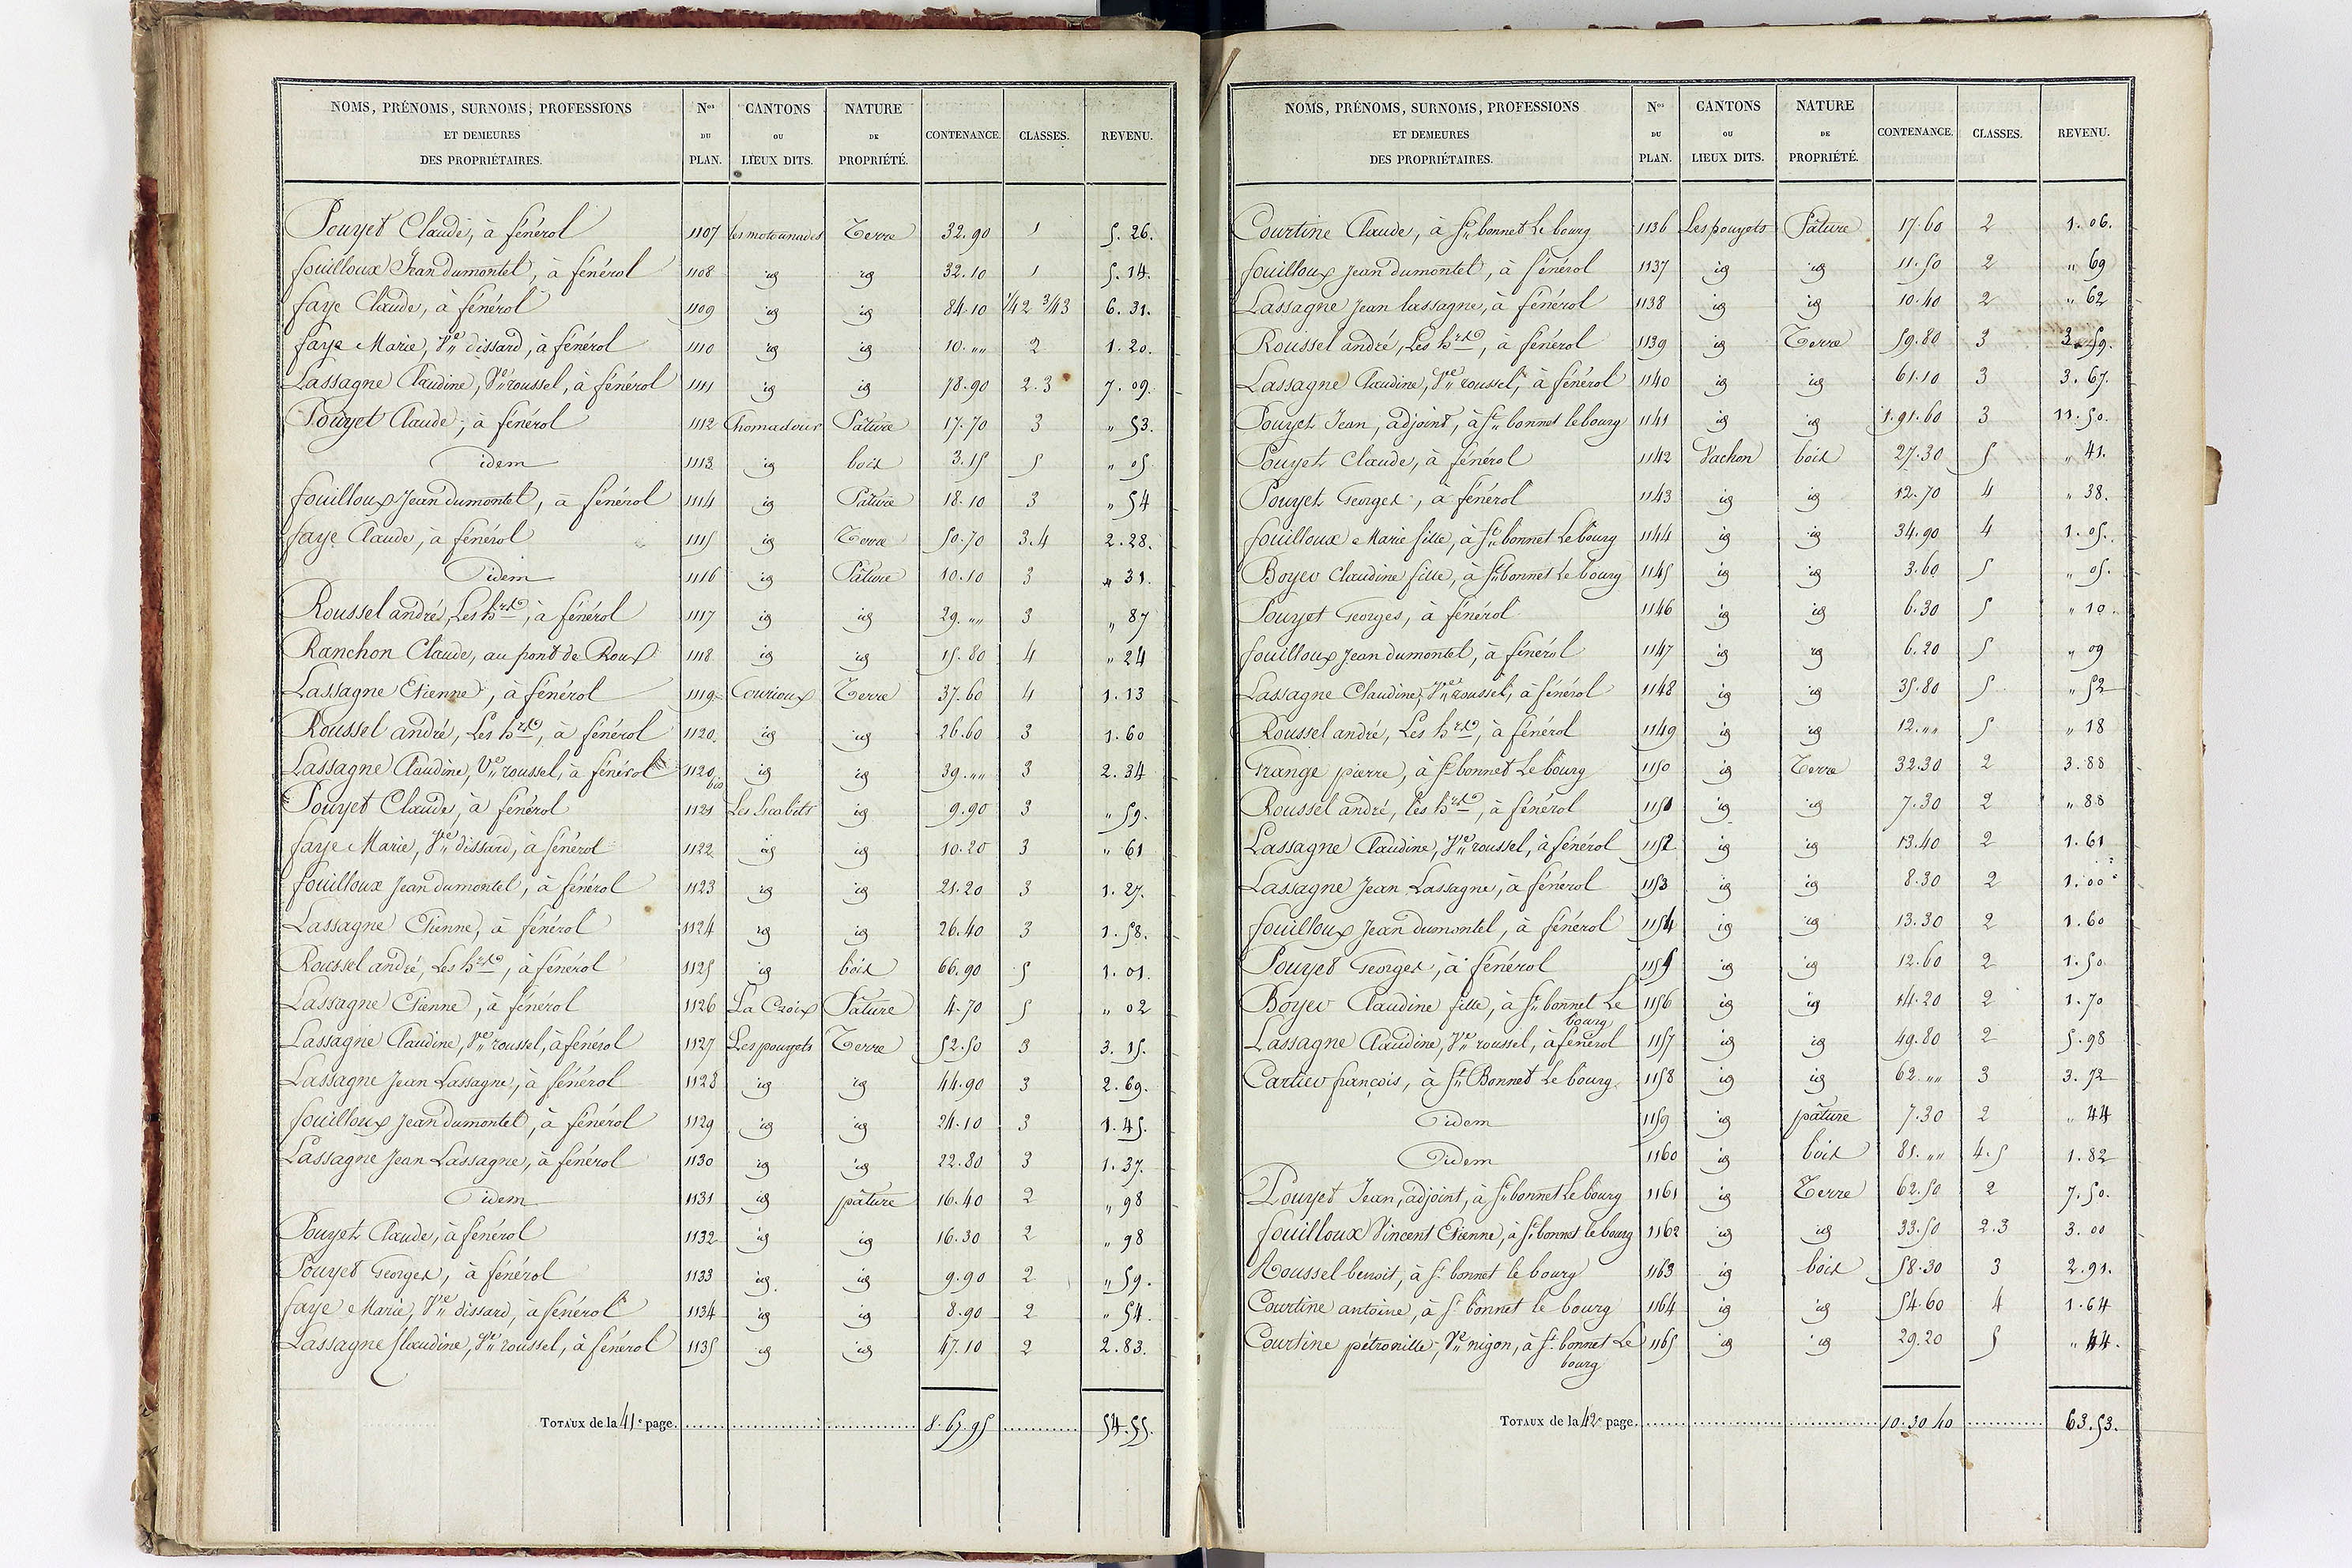 NOMS, PRÉNOMS, SURNOMS, PROFESSIONS ET DEMEURES DES PROPRIÉTAIRES. Nos DU PLAN. CANTONS OU LIEUX DITS. NATURE DE PROPRIÉTÉ. CONTENANCE. CLASSES. REVENU.
Pouyet Claude, à fénérol 1107 Terre 32.90 1 5.26.
fouilloux Jean dumontel, à fénérol 1108 id id 32.10 1 5.14.
faye Claude, à fénérol 1109 id id 84.10 1/4 2 3/4 3 6.31.
faye Marie, Ve dissard, à fénérol 1110 id id 10.„„ 2 1.20.
Lassagne Claudine, Ve roussel, à fénérol 1111 id id 78.90 2.3 7.09.
Pouyet Claude, à fénérol 1112 Chomadoux Pâture 17.70 3 „ 53.
idem 1113 id bois 3.15 5 „ 05
fouilloux Jean dumontel, à fénérol 1114 id Pature 18.10 3 „ 54
faye Claude, à fénérol 1115 id Terre 50.70 3.4 2.28.
Idem 1116 id Pâture 10.10 3 „ 31.
Roussel andré, Les hrs, à fénérol 1117 id id 29.„„ 3 „ 87
Ranchon Claude, au pont de Roux 1118 id id 15.80 4 „ 24
Lassagne Etienne, à fénérol 1119 Courioux Terre 37.60 4 1.13
Roussel andré, Les hrs, à fénérol 1120. id id 26.60 3 1.60
Lassagne Claudine, Ve roussel, à fénérol 1120 bis id id 39.„„ 3 2.34
Pouyet Claude, à fénérol 1121 Les id 9.90 3 „ 59.
faye Marie, Ve dissard, à fénérol 1122 id id 10.20 3 „ 61
fouilloux Jean dumontel, à fénérol 1123 id id 21.20 3 1.27.
Lassagne Etienne, à fénérol 1124 id id 26.40 3 1.58.
Roussel andré, Les hrs, à fénérol 1125 id bois 66.90 5 1.01.
Lassagne Etienne, à fénérol 1126 La Croix Pâture 4.70 5 „ 02
Lassagne Claudine, Ve roussel, à fénérol 1127 Les pouyets Terre 52.50 3 3.15.
Lassagne Jean Lassagne, à fénérol 1128 id id 44.90 3 2.69.
fouilloux Jean dumontel, à fénérol 1129 id id 24.10 3 1.45.
Lassagne Jean Lassagne, à fénérol 1130 id id 22.80 3 1.37.
Idem 1131 id pâture 16.40 2 „ 98
Pouyet Claude, à fénérol 1132 id id 16.30 2 „ 98
Pouyet Georges, à fénérol 1133 id id 9.90 2 „ 59.
faye Marie, Ve dissard, à fénérol 1134 id id 8.90 2 „ 54.
Lassagne Claudine, Ve roussel, à fénérol 1135 id id 47.10 2 2.83.
TOTAUX de la 41e page. 8.67.95 54.55.
NOMS, PRÉNOMS, SURNOMS, PROFESSIONS ET DEMEURES DES PROPRIÉTAIRES. Nos DU PLAN. CANTONS OU LIEUX DITS. NATURE DE PROPRIÉTÉ. CONTENANCE. CLASSES. REVENU.
Courtine Claude, à St bonnet Le bourg 1136 Les pouyets Pâture 17.60 2 1.06.
fouilloux Jean dumontel, à fénérol 1137 id id 11.50 2 „ 69
Lassagne Jean lassagne, à fénérol 1138 id id 10.40 2 „ 62
Roussel andré, Les hrs, à fénérol 1139 id Terre 59.80 3 3.59.
Lassagne Claudine, Ve roussel, à fénérol 1140 id id 61.10 3 3.67.
Pouyet Jean, adjoint, à St bonnet le bourg 1141 id id 1.91.60 3 11.50.
Pouyet Claude, à fénérol 1142 Vachon bois 27.30 5 „ 41.
Pouyet Georges, à fénérol 1143 id id 12.70 4 „ 38.
fouilloux Marie fille, à St bonnet Le bourg 1144 id id 34.90 4 1.05.
Boyer Claudine fille, à St bonnet Le bourg 1145 id id 3.60 5 „ 05.
Pouyet Georges, à fénérol 1146 id id 6.30 5 „ 10.
fouilloux Jean dumontel, à fénérol 1147 id id 6.20 5 „ 09
Lassagne Claudine, Ve roussel, à fénérol 1148 id id 35.80 5 „ 52
Roussel andré, Les hrs, à fénérol 1149 id id 12.„„ 5 „ 18
Grange pierre, à St bonnet Le bourg 1150 id Terre 32.30 2 3.88
Roussel andré, les hrs, à fénérol 1151 id id 7.30 2 „ 88
Lassagne Claudine, Ve roussel, à fénérol 1152 id id 13.40 2 1.61
Lassagne Jean Lassagne, à fénérol 1153 id id 8.30 2 1.00
fouilloux Jean dumontel, à fénérol 1154 id id 13.30 2 1.60
Pouyet Georges, à fénérol 1155 id id 12.60 2 1.50
Boyer Claudine fille, à St bonnet Le bourg 1156 id id 14.20 2 1.70
Lassagne Claudine, Ve roussel, à fénérol 1157 id id 49.80 2 5.98
Cartier françois, à St Bonnet Le bourg 1158 id id 62.„„ 3 3.72
Idem 1159 id pâture 7.30 2 „ 44
Idem 1160 id bois 81.„„ 4.5 1.82
Pouyet Jean, adjoint, à St bonnet Le bourg 1161 id Terre 62.50 2 7.50.
fouilloux Vincent Etienne, à St bonnet le bourg 1162 id id 33.50 2.3 3.00
Roussel benoit, à St bonnet le bourg 1163 id bois 58.30 3 2.91.
Courtine antoine, à St bonnet le bourg 1164 id id 54.60 4 1.64
Courtine pétronille, Ve nigon, à St bonnet Le bourg 1165 id id 29.20 5 „ 44.
TOTAUX de la 42e page. 10.30.40 63.53.